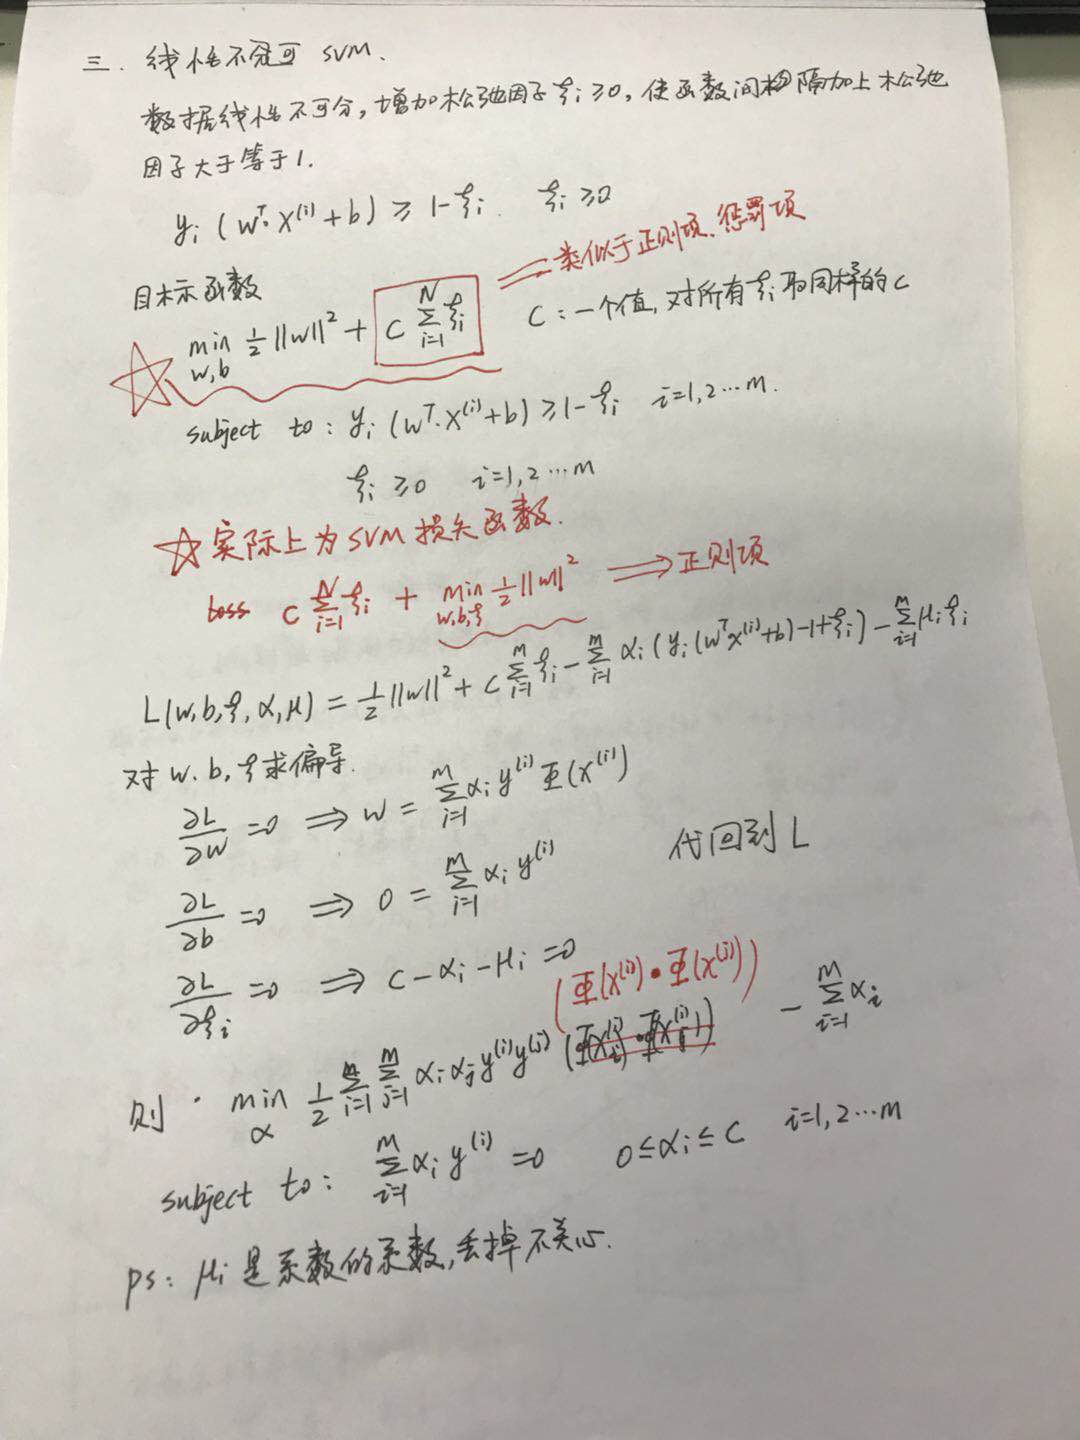 三. 线性不可 SVM.
数据线性不可分, 增加松弛因子 ξi ≥0, 使函数间隔加上松弛
因子大于等于1.
yi (wT·x(i)+b) ≥ 1-ξi. ξi ≥0
=> 类似于正则项、惩罚项
目标函数
min w,b 1/2 ||w||² + C Σ i=1 N ξi
C: 一个值, 对所有 ξi 取同样的 C
subject to: yi (wT·x(i)+b) ≥ 1-ξi i=1,2…m.
ξi ≥0 i=1,2…m
☆ 实际上为 SVM 损失函数.
loss C Σ i=1 N ξi + min w,b,ξ 1/2 ||w||² => 正则项
L(w,b,ξ,α,μ) = 1/2 ||w||² + C Σ i=1 m ξi - Σ i=1 m αi (yi (wT x(i)+b) -1+ξi) - Σ i=1 m μi ξi
对 w. b, ξ 求偏导.
∂L/∂w =0 => w = Σ i=1 m αi y(i) Φ(x(i))
代回到 L
∂L/∂b =0 => 0 = Σ i=1 m αi y(i)
∂L/∂ξi =0 => C-αi-μi =0
(Φ(x(i))·Φ(x(j)))
则. min α 1/2 Σ i=1 m Σ j=1 m αi αj y(i) y(j) - Σ i=1 m αi
subject to: Σ i=1 m αi y(i) =0 0≤αi≤C i=1,2…m
ps: μi 是系数的系数, 丢掉不关心.